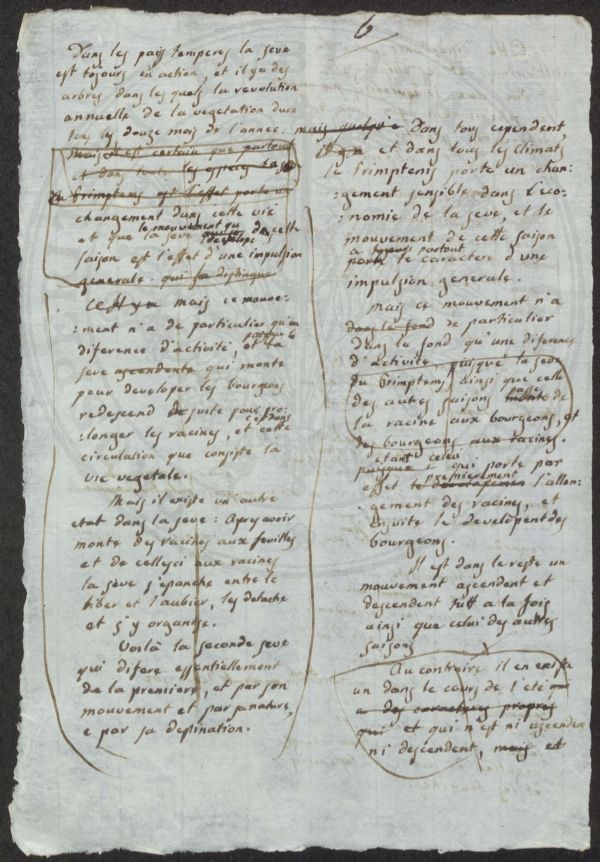 6
Dans les pays temperes la seve
est tojours en action, et il y a des
arbres dans les quels la revolution
annuelle de la vegetation dure
tous les douze mois de l'annee.
mais il est certain que partout
et dans toutes les especes
le brimptems est l'effet porte un
changement dans cette vie
et que la seve
le mouvement qui
develope de cette
saison est l'effet d'une impulsion
generale. qui la distingue
mais ce mouve=
:ment n'a de particulier qu'un
diference d'activité, et la
seve ascendente qui monte
pour developer les bourgeons
redescend ensuite pour pro:
:longer les racines, et cette
c'est dans
circulation que consiste la
vie vegetale.
Mais il existe un autre
etat dans la seve: Apres avoir
monte des racines aux feuilles
et de cellesci aux racines
la sève s'epanche entre le
liber et l'aubier, les detache
et s'y organise.
Voilà la seconde seve
qui difere essentiellement
de la premiere, et par son
mouvement et par sa nature,
e par sa destination.
mais quelqu'e Dans tous cependent,
et dans tous les climats
le brimptems porte un chan=
:gement sensible dans l'eco=
:nomie de la seve, et le
mouvement de cette saison
a toujours partout
porte le caractere d'une
impulsion generale.
Mais ce mouvement n'a
dans le fond de particulier
dans le fond qu'une diference
d'activité, puisque la seve
du brimptems, ainsi que celle
des autres saisons monte de
passe
la racine aux bourgeons, et
des bourgeons aux racines.
etant celui
puisque qui porte par
premierement
effet le developemen l'allon=
:gement des racines, et
ensuite le developent des
bourgeons.
Il est dans le reste un
mouvement ascendent et
descendent tutt a la fois
ainsi que celui des autres
saisons
Au contraire il en existe
un dans le cours de l'eté qui
a des caracteres propres
qui et qui n'est ni ascenden
ni descendent, mais et